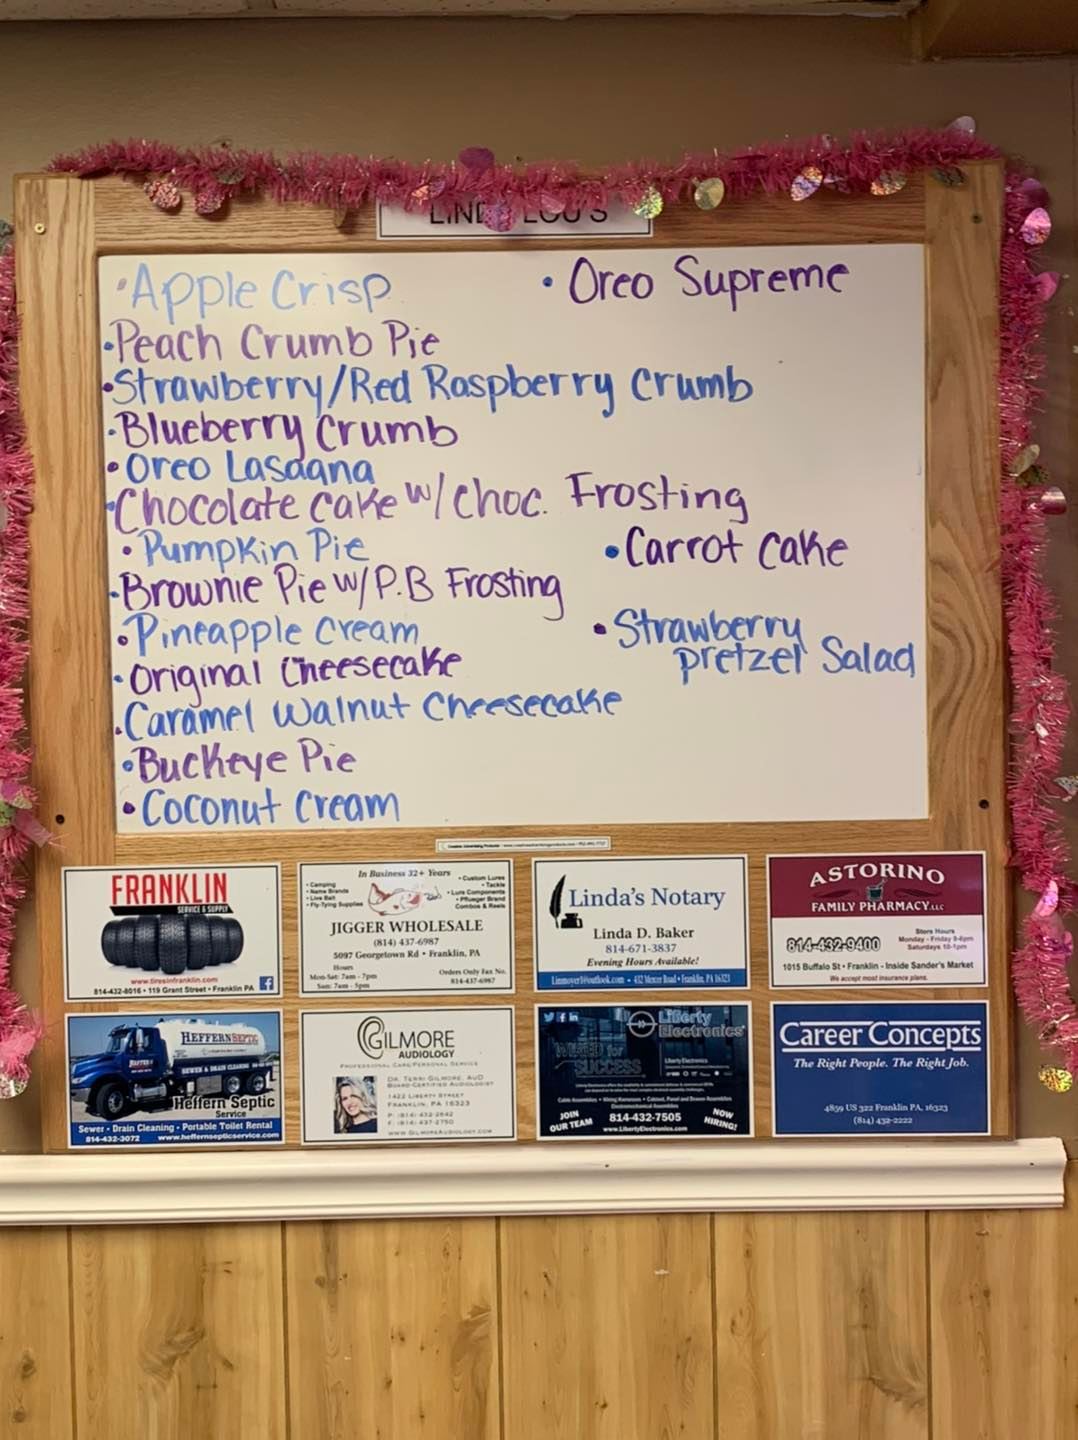 LINDA LOU'S
• Apple Crisp
• Oreo Supreme
• Peach Crumb Pie
• Strawberry/Red Raspberry Crumb
• Blueberry Crumb
• Oreo Lasagna
• Chocolate cake w/choc. Frosting
• Pumpkin Pie
• Carrot cake
• Brownie Pie w/P.B Frosting
• Pineapple Cream
• Strawberry
pretzel Salad
• Original Cheesecake
• Caramel Walnut Cheesecake
• Buckeye Pie
• Coconut Cream
FRANKLIN
SERVICE & SUPPLY
www.tiresinfranklin.com
814-432-8016 • 119 Grant Street • Franklin PA
In Business 32+ Years
• Camping
• Name Brands
• Live Bait
• Fly-Tying Supplies
• Custom Lures
• Tackle
• Lure Components
• Pflueger Brand
Combos & Reels
JIGGER WHOLESALE
(814) 437-6987
5097 Georgetown Rd • Franklin, PA
Hours
Mon-Sat: 7am - 7pm
Sun: 7am - 5pm
Orders Only Fax No.
814-437-6987
Linda's Notary
Linda D. Baker
814-671-3837
Evening Hours Available!
Linmoyer1@outlook.com • 432 Mercer Road • Franklin, PA 16323
ASTORINO
FAMILY PHARMACY LLC
814-432-9400
Store Hours
Monday - Friday 9-6pm
Saturdays 10-1pm
1015 Buffalo St • Franklin - Inside Sander's Market
We accept most insurance plans.
HEFFERN SEPTIC
SEWER & DRAIN CLEANING
Heffern Septic
Service
Sewer • Drain Cleaning • Portable Toilet Rental
814-432-3072 www.heffernsepticservice.com
GILMORE
AUDIOLOGY
PROFESSIONAL CARE/PERSONAL SERVICE
DR. TERRI GILMORE, AUD
BOARD-CERTIFIED AUDIOLOGIST
1422 LIBERTY STREET
FRANKLIN, PA 16323
P: (814) 432-2642
F: (814) 437-2750
WWW.GILMOREAUDIOLOGY.COM
Liberty
Electronics
WIRED for
SUCCESS
Liberty Electronics
Cable Assemblies • Wiring Harnesses • Cabinet, Panel and Drawer Assemblies
Electromechanical Assemblies
JOIN
OUR TEAM
814-432-7505
www.LibertyElectronics.com
NOW
HIRING!
Career Concepts
The Right People. The Right Job.
4859 US 322 Franklin PA, 16323
(814) 432-2222